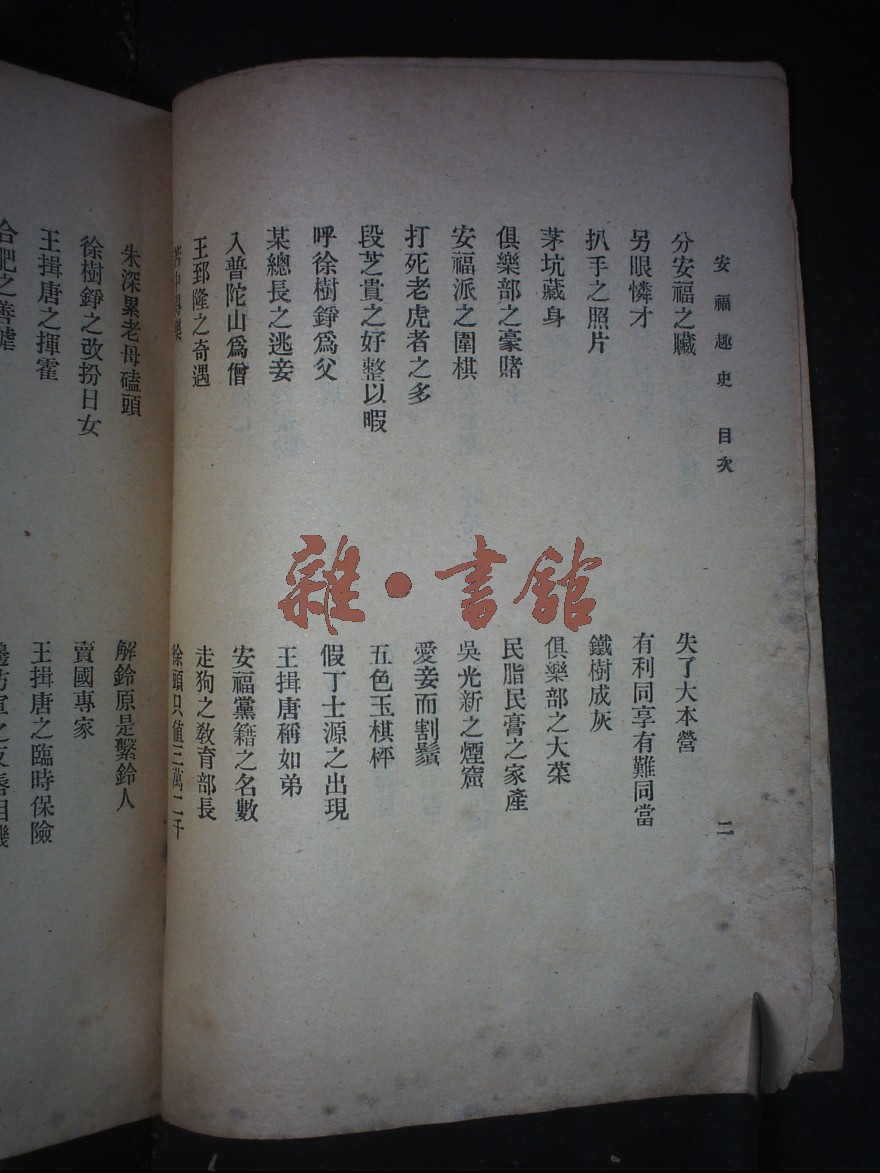 安福趣史 目次 二
分安福之贓
失了大本營
另眼憐才
有利同享有難同當
扒手之照片
鐵樹成灰
茅坑藏身
俱樂部之大菜
俱樂部之豪賭
民脂民膏之家產
安福派之圍棋
吳光新之煙窟
打死老虎者之多
愛妾而割鬚
段芝貴之好整以暇
五色玉棋枰
呼徐樹錚爲父
假丁士源之出現
某總長之逃妾
王揖唐稱如弟
入普陀山爲僧
安福黨籍之名數
王郅隆之奇遇
走狗之敎育部長
徐頭只値三萬二千
朱深累老母磕頭
解鈴原是繫鈴人
徐樹錚之改扮日女
賣國專家
王揖唐之揮霍
王揖唐之臨時保險
合肥之善謔
雜·書館